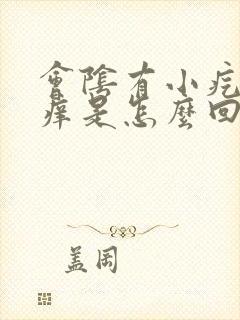 會陰有小疙
癢是怎麼回
蓋岡